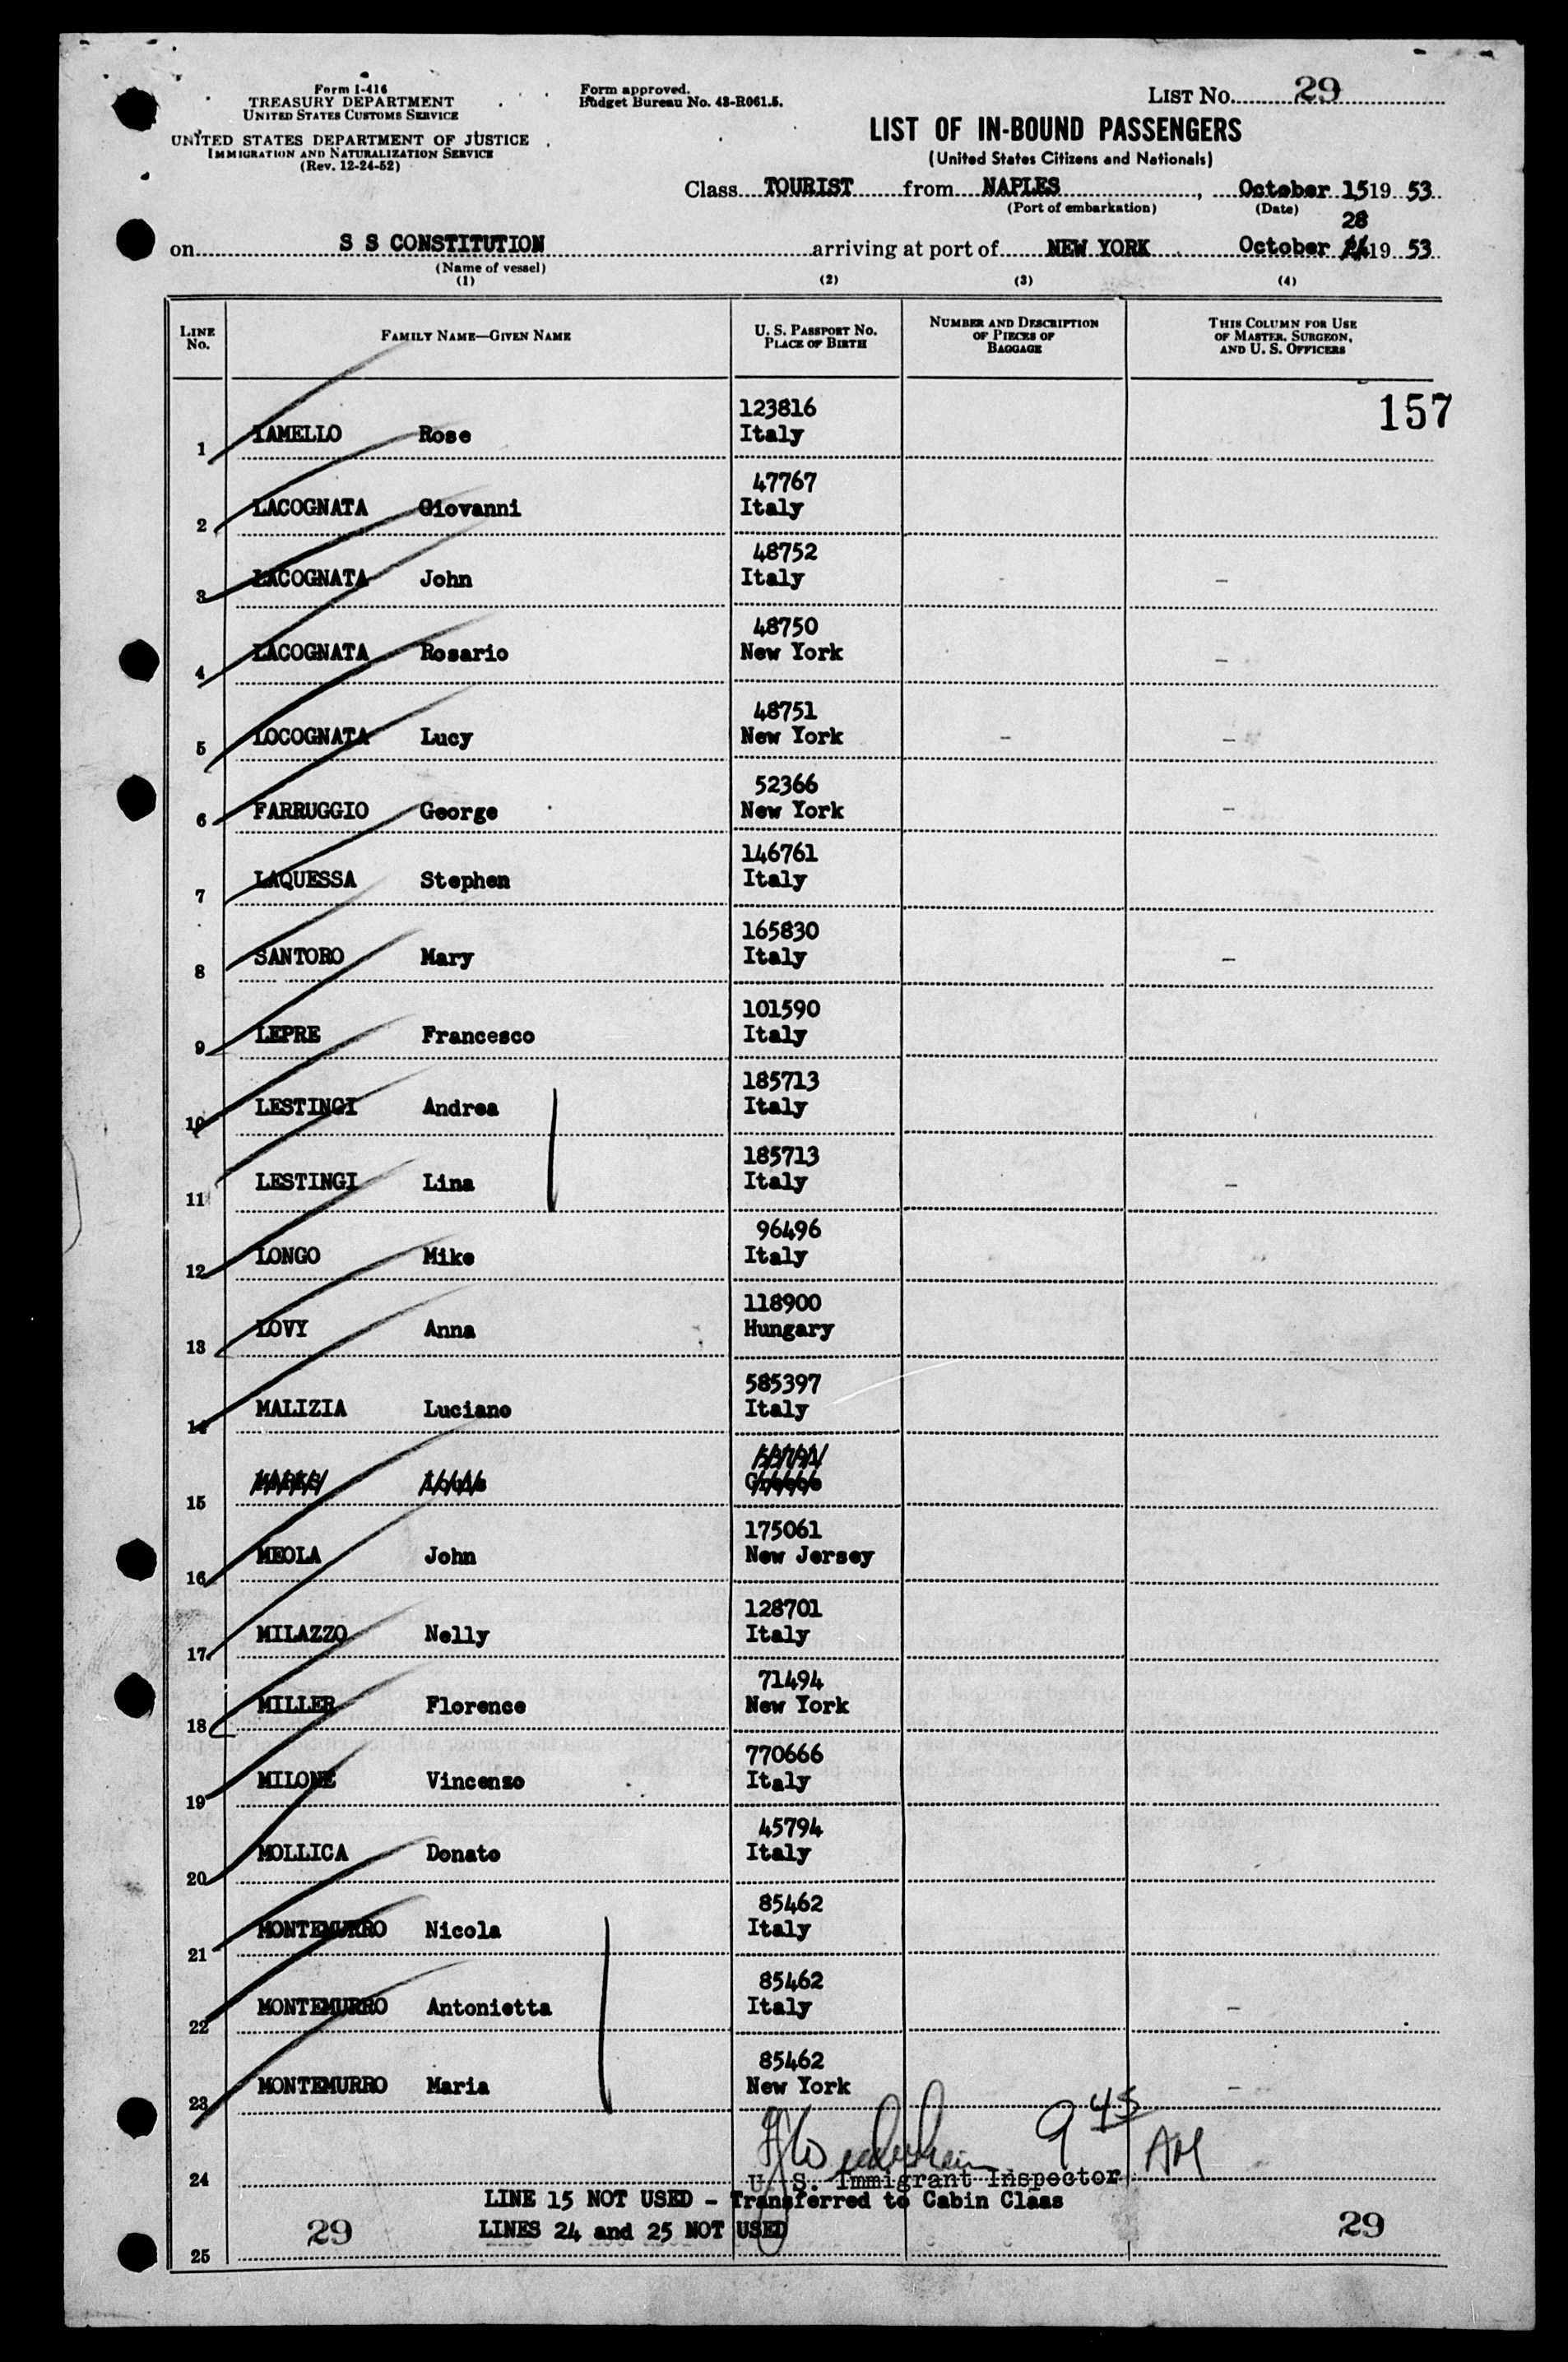 Form I-416
TREASURY DEPARTMENT
UNITED STATES CUSTOMS SERVICE
UNITED STATES DEPARTMENT OF JUSTICE
IMMIGRATION AND NATURALIZATION SERVICE
(Rev. 12-24-52)
Form approved.
Budget Bureau No. 43-R061.5.
LIST NO. 29
LIST OF IN-BOUND PASSENGERS
(United States Citizens and Nationals)
Class TOURIST from NAPLES, October 15 19 53
(Port of embarkation) (Date)
28
on S S CONSTITUTION arriving at port of NEW YORK October 19 53
(Name of vessel)
(1) (2) (3) (4)
LINE No. FAMILY NAME—GIVEN NAME U. S. PASSPORT NO. PLACE OF BIRTH NUMBER AND DESCRIPTION OF PIECES OF BAGGAGE THIS COLUMN FOR USE OF MASTER, SURGEON, AND U. S. OFFICERS
157
123816
1 IAMELLO Rose Italy
47767
2 LACOGNATA Giovanni Italy
48752
3 LACOGNATA John Italy -
48750
4 LACOGNATA Rosario New York -
48751
5 LOCOGNATA Lucy New York - -
52366
6 FARRUGGIO George New York -
146761
7 LAQUESSA Stephen Italy
165830
8 SANTORO Mary Italy -
101590
9 LEPRE Francesco Italy
185713
10 LESTINGI Andrea Italy
185713
11 LESTINGI Lina Italy -
96496
12 LONGO Mike Italy
118900
13 LOVY Anna Hungary
585397
14 MALIZIA Luciano Italy
15
175061
16 MEOLA John New Jersey
128701
17 MILAZZO Nelly Italy
71494
18 MILLER Florence New York
770666
19 MILONE Vincenzo Italy
45794
20 MOLLICA Donato Italy
85462
21 MONTEMURRO Nicola Italy
85462
22 MONTEMURRO Antonietta Italy -
85462
23 MONTEMURRO Maria New York -
9 45 AM
24 U. S. Immigrant Inspector
LINE 15 NOT USED - Transferred to Cabin Class
29 LINES 24 and 25 NOT USED 29
25